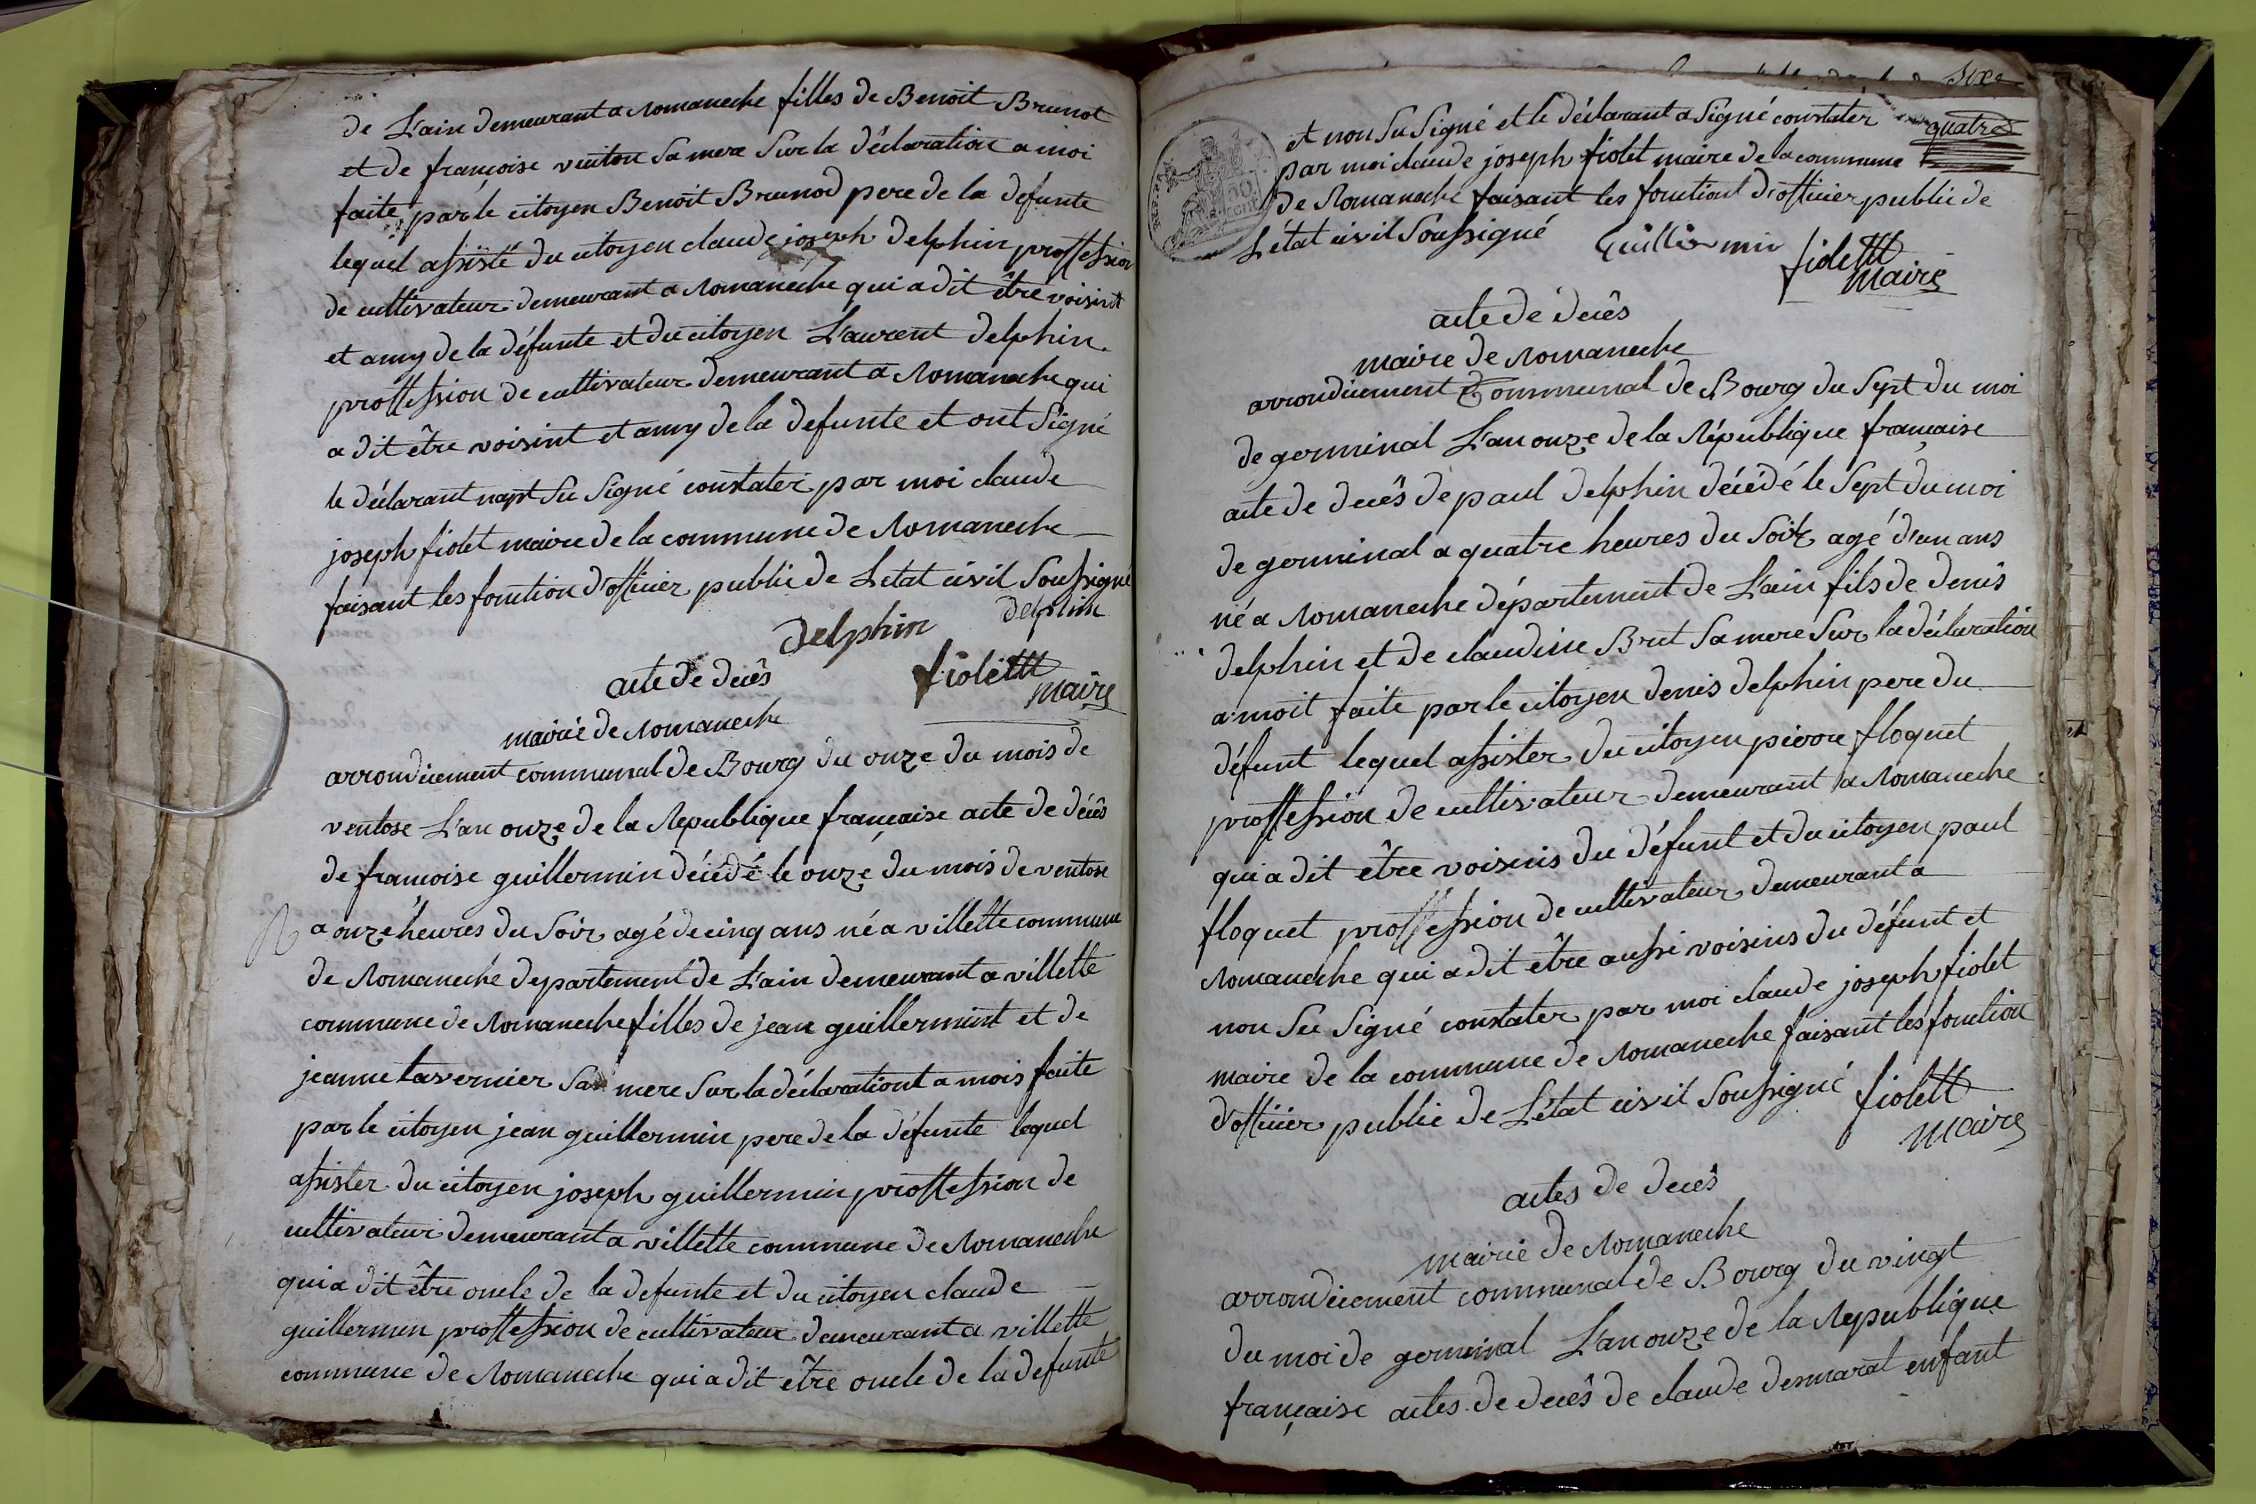 de L'ain demeurant a Romaneche filles de Benoit Brunot
et de françoise vuiton Sa mere Sur la déclaration a moi
faite, par le citoyen Benoit Brunod pere de la défunte
lequel assisté du citoyen claude joseph delphin proffession
de cultivateur demeurant a Romaneche qui a dit être voisint
et amy de la défunte et du citoyen Laurent delphin
proffession de cultivateur demeurant a Romaneche qui
a dit être voisint et amy de la defunte et ont Signé
le déclarant napt Su Signé constater par moi claude
joseph fiolet maire de la commune de Romaneche
faisant les fonction d'officier public de Letat civil Soussigné
delphin delphin
fiolett
maire
acte de decês
mairie de Romaneche
arrondicement communal de Bourg du onze du mois de
ventose L'an onze de la Republique francaise acte de décês
de francoise guillermin décédé le onze du mois de ventose
a onze heures du Soir agé de cinq ans né a villette commune
de Romaneche departement de L'ain demeurant a villette
commune de Romaneche filles de jean guillermint et de
jeanne tavernier Sa mere Sur la déclarationt a mois faite
par le citoyen jean guillermin pere de la défunte lequel
assister du citoyen joseph guillermin proffession de
cultivateur demeurant a villette commune de Romaneche
qui a dit être oncle de la defunte et du citoyen claude
guillermin proffession de cultivateur demeurant a villette
commune de Romaneche qui a dit être oncle de la defunte
Six
quatre
et non Su Signé et le déclarant a Signé constater
par moi claude joseph fiolet maire de la commune
de Romaneche faisant les fonctiont d'officier public de
L'état civil Soussigné Guillermin fiolett
maire
acte de decês
mairie de Romaneche
arrondicement Communal de Bourg du Sept du moi
de germinail L'an onze de la République française
acte de decês de paul delphin décédé le Sept du moi
de germinal a quatre heures du Soir agé d'un ans
né a Romaneche département de L'ain fils de denis
delphin et de claudine Brut Sa mere Sur la déclaration
a moit faite par le citoyen denis delphin pere du
défunt lequel assister du citoyen pierre floquet
proffession de cultivateur demeurant a Romaneche
qui a dit être voisins du défunt et du citoyen paul
floquet proffession de cultivateur demeurant a
Romaneche qui a dit être aussi voisins du défunt et
non Su Signé constater par moi claude joseph fiolet
maire de la commune de Romaneche faisant les fonction
d'officier public de L'état civil Soussigné fiolett
maire
actes de decês
mairie de Romaneche
arrondicement communal de Bourg du vingt
du moi de germinal L'an onze de la Republique
française actes de decês de claude desmarat enfant